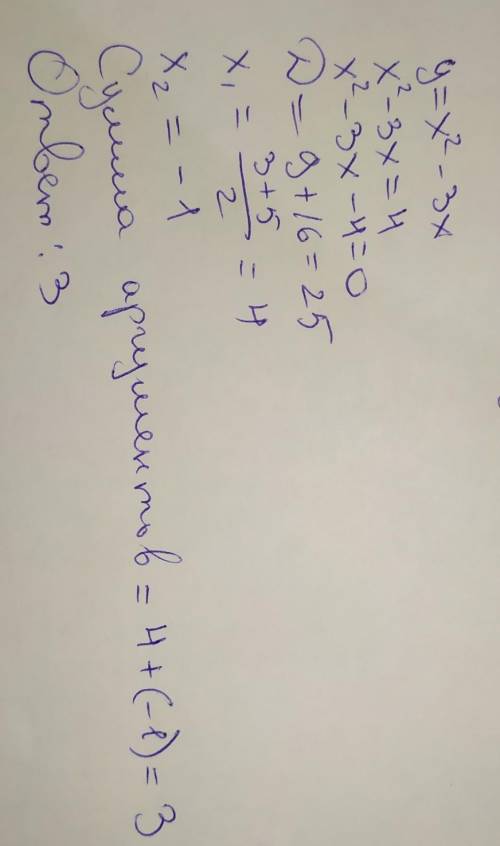 y = x² - 3x
x² - 3x = 4
x² - 3x - 4 = 0
D = 9 + 16 = 25
x₁ = (3 + 5)/2 = 4
x₂ = -1
Сумма аргументов = 4 + (-1) = 3
Ответ: 3